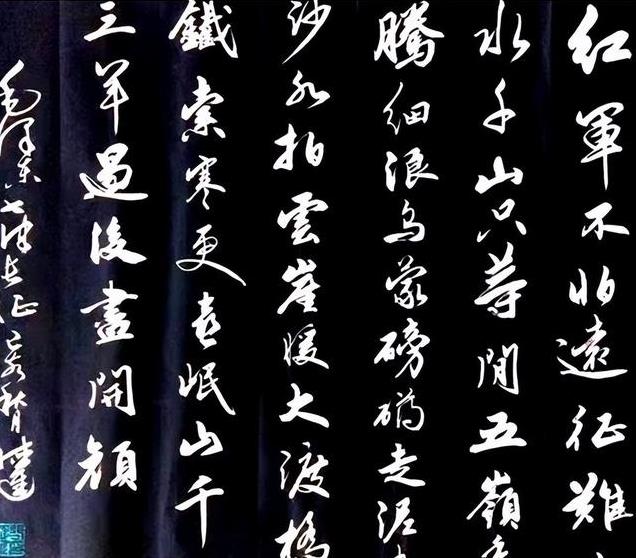 红軍不怕遠征難
水千山只等閒五嶺
騰細浪烏蒙磅礴走泥
沙水拍雲崖暖大渡橋
鐵索寒更喜岷山千
三军過後盡開顔
毛泽东七律长征